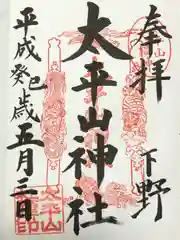 奉拝
下野
太平山神社
平成癸巳歳五月三日